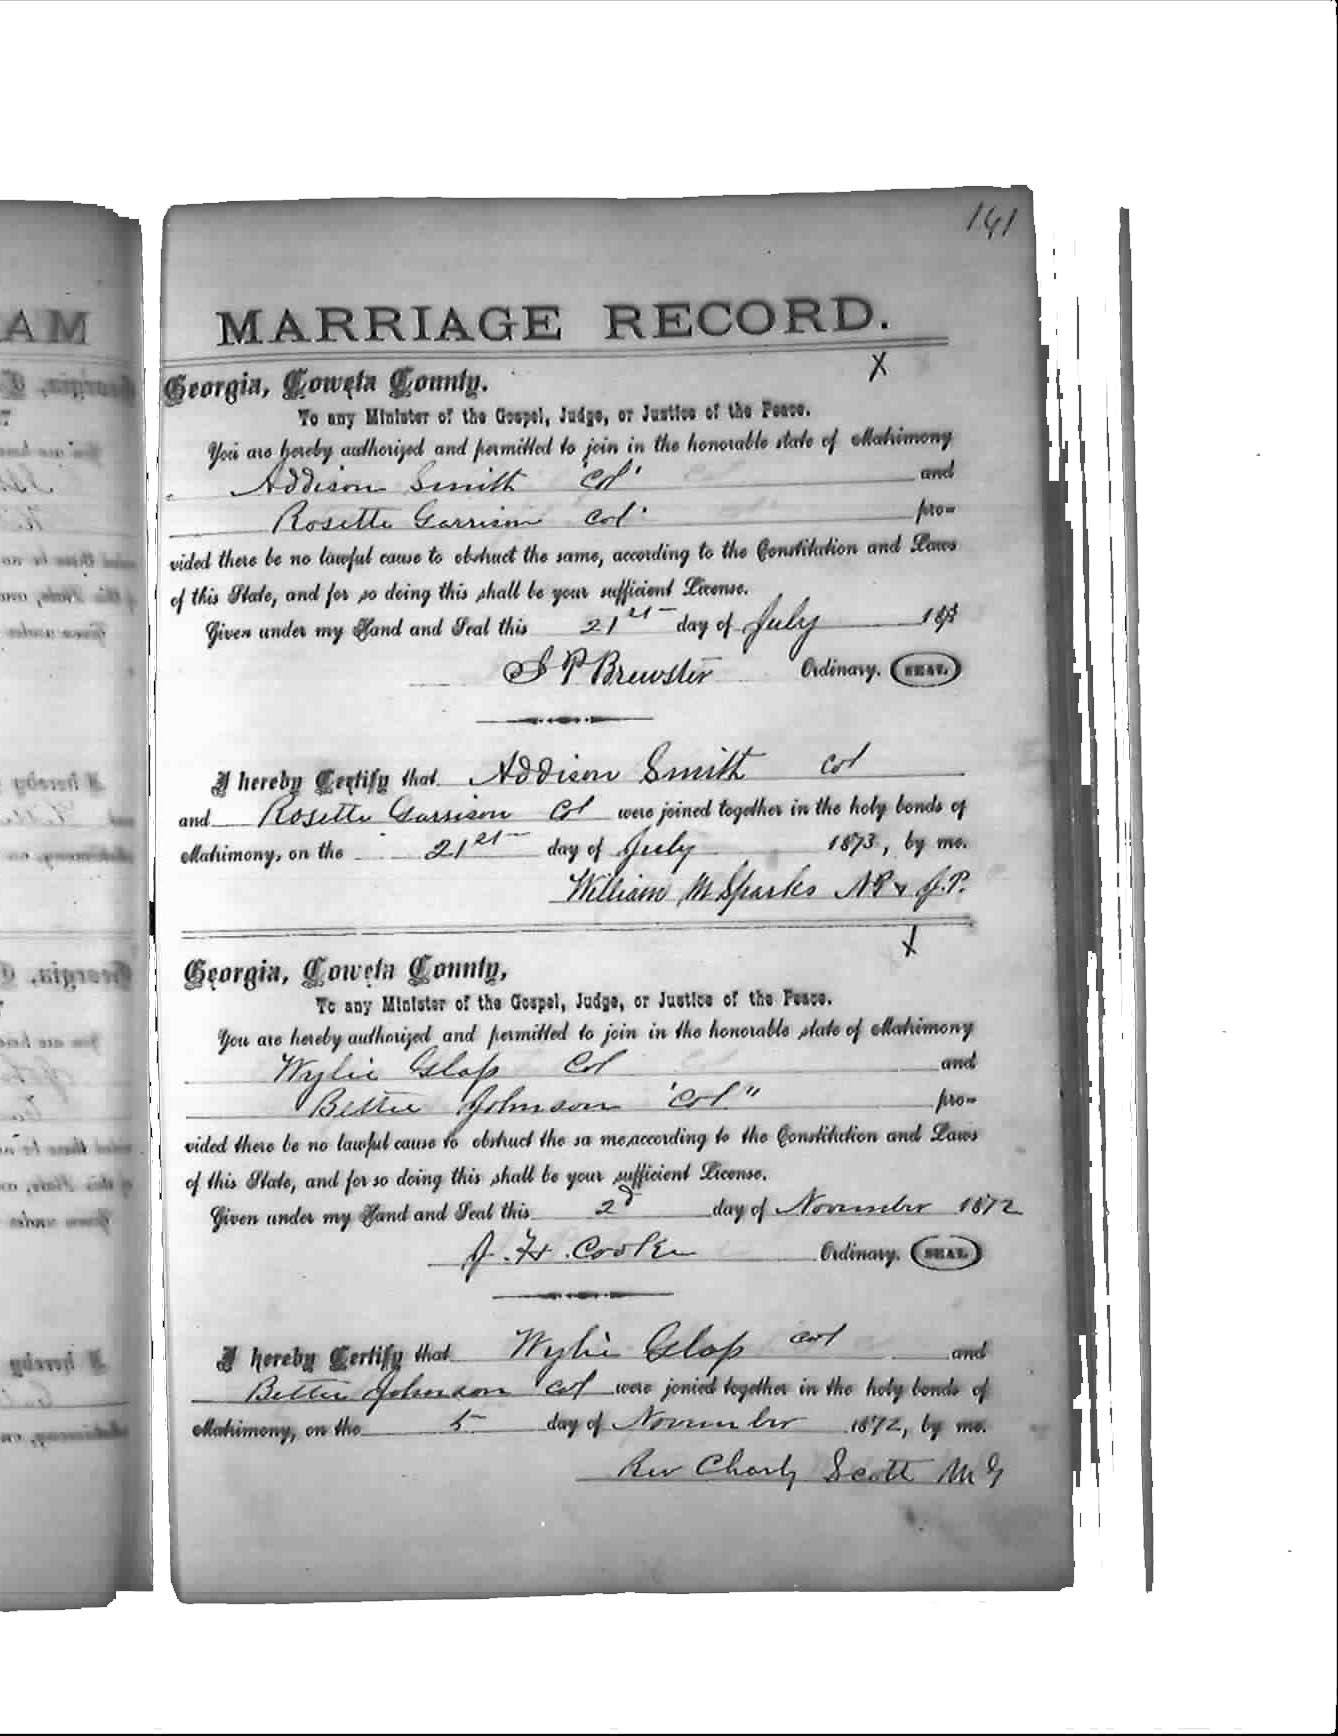 141
MARRIAGE RECORD.
X
Georgia, Coweta County.
To any Minister of the Gospel, Judge, or Justice of the Peace.
You are hereby authorized and permitted to join in the honorable state of Matrimony
Addison Smith 'Col' and
Rosette Garrison Col' pro-
vided there be no lawful cause to obstruct the same, according to the Constitution and Laws
of this State, and for so doing this shall be your sufficient License.
Given under my Hand and Seal this 21st day of July 187
P Brewster Ordinary. SEAL.
I hereby Certify that Addison Smith Col
and Rosette Garrison Col were joined together in the holy bonds of
Matrimony, on the 21st day of July 1873, by me.
William M Sparks NP & J.P.
X
Georgia, Coweta County,
To any Minister of the Gospel, Judge, or Justice of the Peace.
You are hereby authorized and permitted to join in the honorable state of Matrimony
Wylie Glass Col and
Bettie Johnson 'Col" pro-
vided there be no lawful cause to obstruct the sa me, according to the Constitution and Laws
of this State, and for so doing this shall be your sufficient License.
Given under my Hand and Seal this 2d day of November 1872
J. H. Cooke Ordinary. SEAL.
I hereby Certify that Wylie Glass Col and
Bettie Johnson Col were jonied together in the holy bonds of
Matrimony, on the 5 day of November 1872, by me.
Rev Charly Scott M G